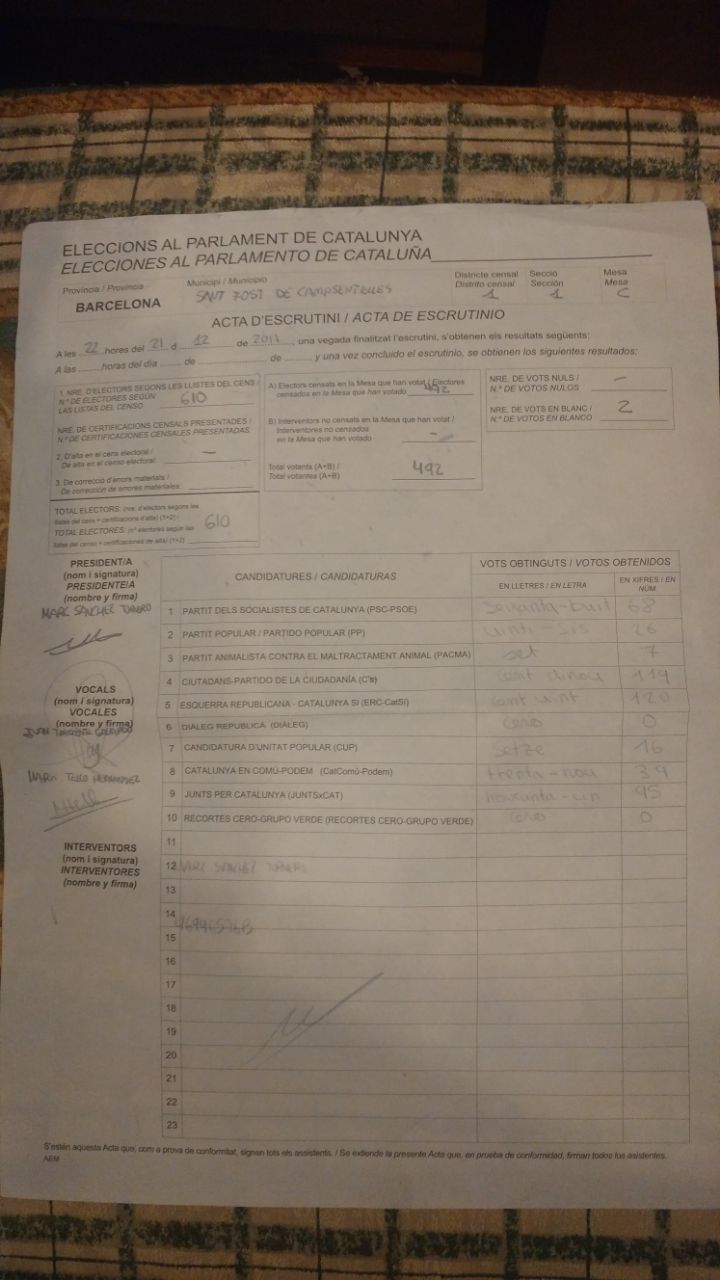 ELECCIONS AL PARLAMENT DE CATALUNYA
ELECCIONES AL PARLAMENTO DE CATALUÑA
Província / Provincia Municipi / Municipio Districte censal Secció Mesa
Distrito censal Sección Mesa
BARCELONA SANT FOST DE CAMPSENTELLES 1 1 C
ACTA D'ESCRUTINI / ACTA DE ESCRUTINIO
A les 22 hores del 21 d 12 de 2017, una vegada finalitzat l'escrutini, s'obtenen els resultats següents:
A las horas del día de de y una vez concluido el escrutinio, se obtienen los siguientes resultados:
1. NRE. D'ELECTORS SEGONS LES LLISTES DEL CENS /
N.º DE ELECTORES SEGÚN
LAS LISTAS DEL CENSO 610
NRE. DE CERTIFICACIONS CENSALS PRESENTADES /
N.º DE CERTIFICACIONES CENSALES PRESENTADAS
2. D'alta en cens electoral /
De alta en el censo electoral: –
3. De correcció d'errors materials /
De corrección de errores materiales:
TOTAL ELECTORS: (nre. d'electors segons les
llistes del cens + certificacions d'alta) (1+2) /
TOTAL ELECTORES: (nº electores según las
listas del censo + certificaciones de alta) (1+2) 610
A) Electors censats en la Mesa que han votat / Electores
censados en la Mesa que han votado 492
B) Interventors no censats en la Mesa que han votat /
Interventores no censados
en la Mesa que han votado –
Total votants (A+B) /
Total votantes (A+B) 492
NRE. DE VOTS NULS /
N.º DE VOTOS NULOS –
NRE. DE VOTS EN BLANC /
N.º DE VOTOS EN BLANCO 2
PRESIDENT/A
(nom i signatura)
PRESIDENTE/A
(nombre y firma)
MARC SANCHEZ
VOCALS
(nom i signatura)
VOCALES
(nombre y firma)
MARTA TELLO HERNANDEZ
INTERVENTORS
(nom i signatura)
INTERVENTORES
(nombre y firma)
CANDIDATURES / CANDIDATURAS VOTS OBTINGUTS / VOTOS OBTENIDOS
EN LLETRES / EN LETRA EN XIFRES / EN NÚM.
1 PARTIT DELS SOCIALISTES DE CATALUNYA (PSC-PSOE) seixanta-buit 68
2 PARTIT POPULAR / PARTIDO POPULAR (PP) vinti sis 26
3 PARTIT ANIMALISTA CONTRA EL MALTRACTAMENT ANIMAL (PACMA) set 7
4 CIUTADANS-PARTIDO DE LA CIUDADANÍA (C's) cent dinou 119
5 ESQUERRA REPUBLICANA - CATALUNYA SÍ (ERC-CatSí) cent vint 120
6 DIÀLEG REPUBLICÀ (DIÀLEG) cero 0
7 CANDIDATURA D'UNITAT POPULAR (CUP) setze 16
8 CATALUNYA EN COMÚ-PODEM (CatComú-Podem) trenta-nou 39
9 JUNTS PER CATALUNYA (JUNTSxCAT) noranta-cin 95
10 RECORTES CERO-GRUPO VERDE (RECORTES CERO-GRUPO VERDE) cero 0
11
12 MARC SANCHEZ
13
14
15
16
17
18
19
20
21
22
23
S'estén aquesta Acta que, com a prova de conformitat, signen tots els assistents. / Se extiende la presente Acta que, en prueba de conformidad, firman todos los asistentes.
AEM